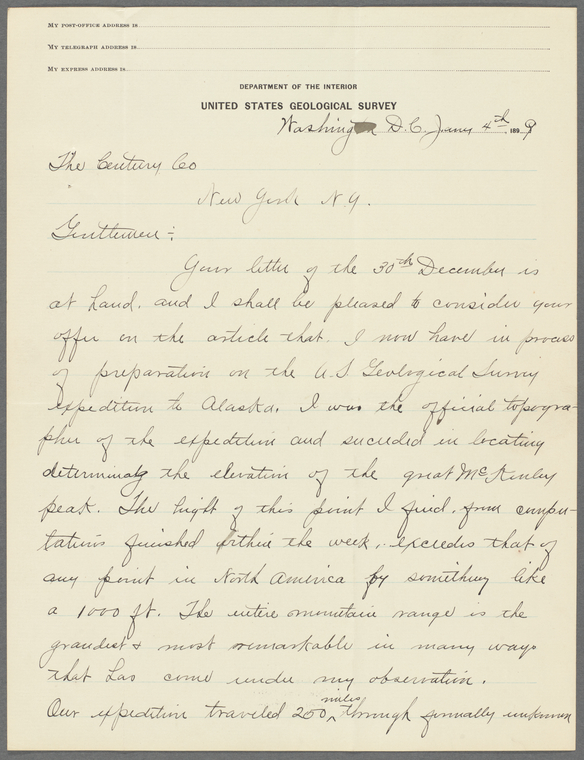 MY POST-OFFICE ADDRESS IS
MY TELEGRAPH ADDRESS IS
MY EXPRESS ADDRESS IS
DEPARTMENT OF THE INTERIOR
UNITED STATES GEOLOGICAL SURVEY
Washington D.C. Jany 4th 1899
The Century Co
New York N.Y.
Gentlemen :
Your letter of the 30th December is
at hand. and I shall be pleased to consider your
offer on the article that I now have in process
of preparation on the U.S Geological Survey
expedition to Alaska. I was the official topogra-
pher of the expedition and succeeded in locating
determinatg the elevation of the great McKinley
peak. The hight of this point I find, from compu-
tations finished within the week, excedes that of
any point in North America by something like
a 1000 ft. The entire mountain range is the
grandest & most remarkable in many ways
that has come under my observation.
Our expedition traveled 250 miles through formally unknown